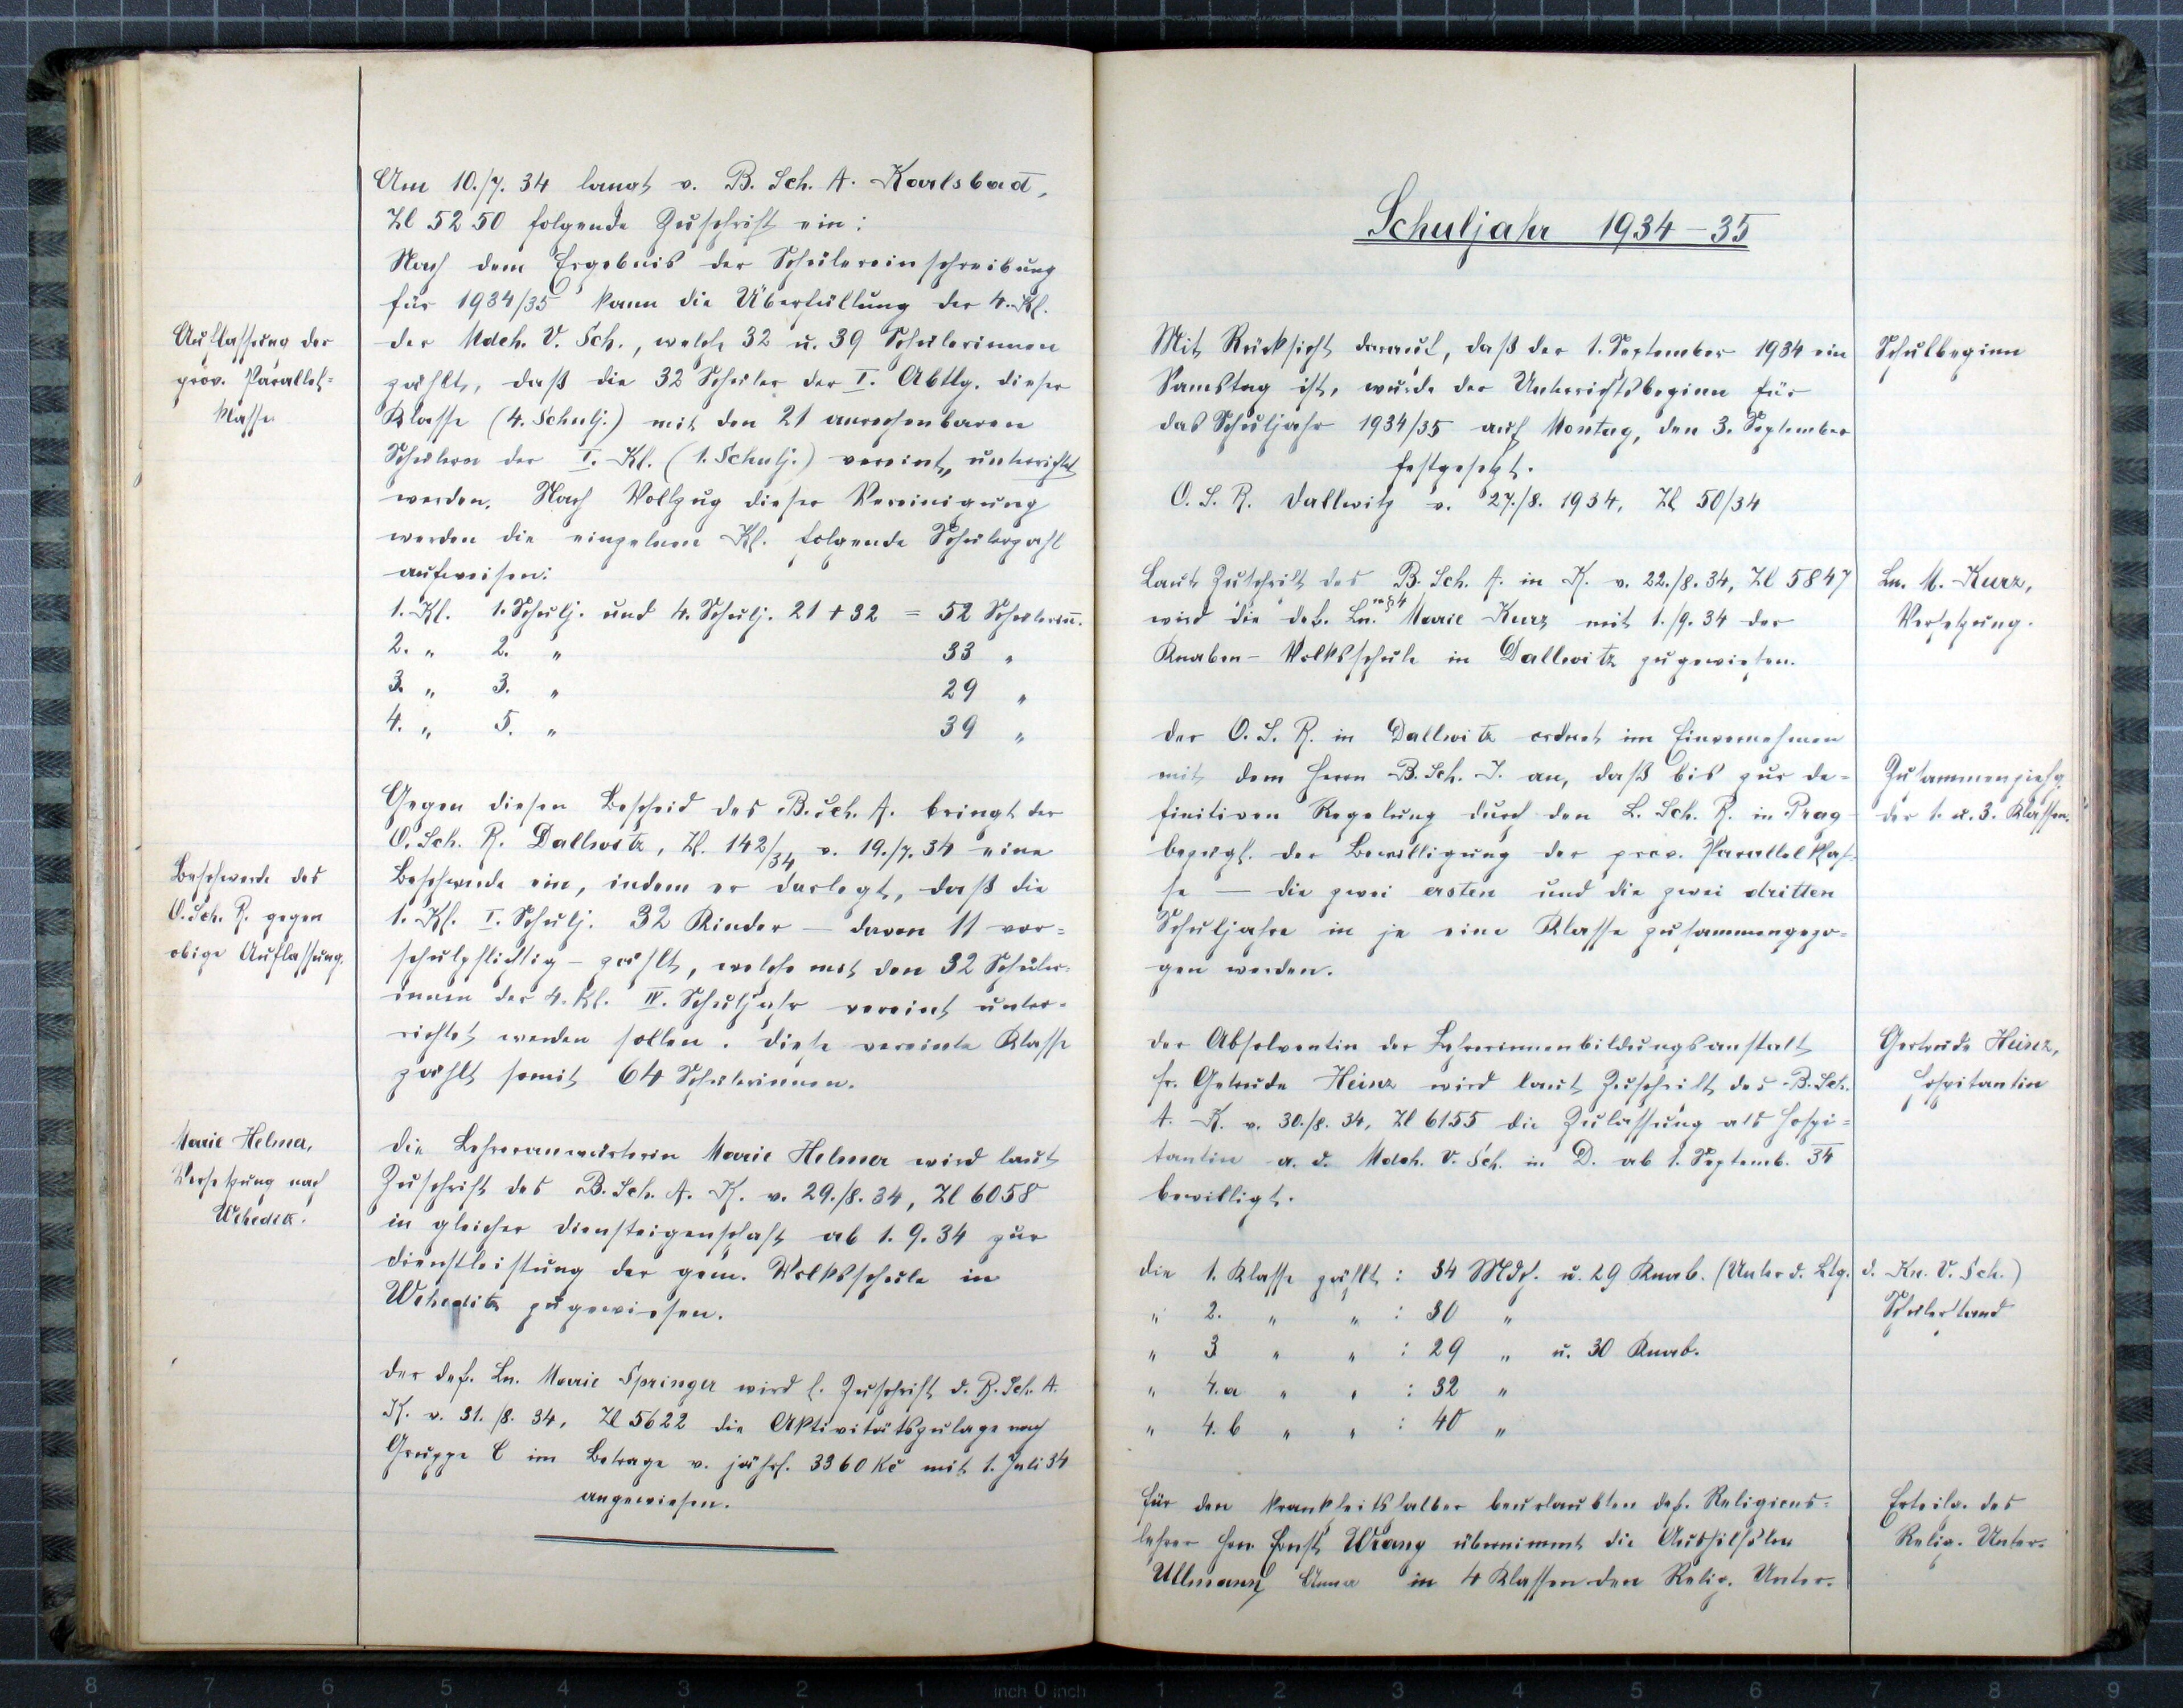 Am 10./7. 34 langt v. B. Sch. A. Karlsbad,
Zl 5250 folgende Zuschrift ein:
Nach dem Ergebnis der Schülereinschreibung
für 1934/35 kann die Überfüllung der 4. Kl.
Auflassung der
prov. Parallel-
klasse
der Mdch. V. Sch., welche 32 u. 39 Schülerinnen
zählt, daß die 32 Schüler der I. Abtlg. dieser
Klasse (4. Schulj.) mit den 21 anrechenbaren
Schülern der I. Kl. (1. Schulj.) vereint, unterrichtet
werden. Nach Vollzug dieser Vereinigung
werden die einzelnen Kl. folgende Schülerzahl
aufweisen:
1. Kl. 1. Schulj. und 4. Schulj. 21 + 32 = 52 Schülerinn.
2. " 2. " 33 "
3. " 3. " 29 "
4. " 5. " 39 "
Gegen diesen Bescheid des B. Sch. A. bringt der
O. Sch. R. Dallwitz, Zl. 142/34 v. 19./7. 34 eine
Beschwerde des
O. Sch. R. gegen
obige Auflassung.
Beschwerde ein, indem er darlegt, daß die
1. Kl. I. Schulj. 32 Kinder – davon 11 vor=
schulpflichtig – zählt, welche mit den 32 Schüler=
innen der 4. Kl. IV. Schuljahr vereint unter=
richtet werden sollen. Diese vereinte Klasse
zählt somit 64 Schülerinnen.
Marie Helmer,
Versetzung nach
Weheditz.
Die Lehreranwärterin Marie Helmer wird laut
Zuschrift des B. Sch. A. K. v. 29./8. 34, Zl 6058
in gleicher Diensteigenschaft ab 1. 9. 34 zur
Dienstleistung der gem. Volksschule in
Weheditz zugewiesen.
Der def. Ln. Marie Springer wird l. Zuschrift d. B. Sch. A.
K. v. 31. /8. 34, Zl 5622 die Aktivitätszulage nach
Gruppe C im Betrage v. jährl. 3360 Kč mit 1. Juli 34
angewiesen.
Schuljahr 1934–35
Mit Rücksicht darauf, daß der 1. September 1934 ein
Samstag ist, wurde der Unterrichtsbeginn für
das Schuljahr 1934/35 auf Montag, den 3. September
festgesetzt.
O. S. R. Dallwitz v. 27./8. 1934, Zl 50/34
Schulbeginn
Laut Zuschrift des B. Sch. A. in K. v. 22./8. 34, Zl 5847
wird die def. Ln. Marie Kurz mit 1./9. 34 der
Knaben-Volksschule in Dallwitz zugewiesen.
Ln. M. Kurz,
Versetzung.
Der O. S. R. in Dallwitz ordnet im Einvernehmen
mit dem Herrn B. Sch. I. an, daß bis zur de=
finitiven Regelung durch den L. Sch. R. in Prag –
bezügl. der Bewilligung der prov. Parallelklas=
se — die zwei ersten und die zwei dritten
Schuljahre in je eine Klasse zusammengezo=
gen werden.
Zusammenziehg.
der 1. u. 3. Klassen.
Der Absolventin der Lehrerinnenbildungsanstalt
Fr. Getrude Heinz wird laut Zuschrift des B. Sch.
A. K. v. 30./8. 34, Zl 6155 die Zulassung als Hospi=
tantin a. d. Mdch. V. Sch. in D. ab 1. Septemb. 34
bewilligt.
Gertrude Heinz,
Hospitantin
Die 1. Klasse zählt: 34 Mdch. u. 29 Knab. (Unter d. Ltg. d. Kn. V. Sch.)
" 2. " " : 30 "
" 3 " " : 29 " u. 30 Knab.
" 4. a " " : 32 "
" 4. b " " : 40 "
Schülerstand
Für den krankheitshalber beurlaubten def. Religions=
lehrer Hrn. Ernst übernimmt die Aushilfsln
Ullmann Anna in 4 Klassen den Relig. Unter-
Erteilg. des
Relig. Unter-